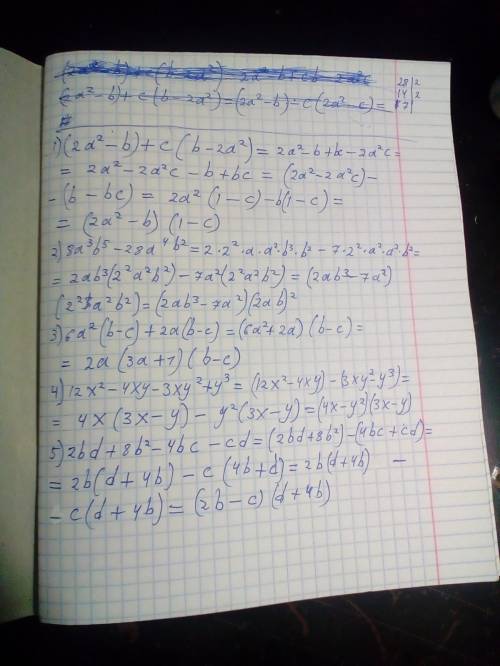 (2a²-b)+c(b-2a²)=(2a²-b)-c(2a²-c)=
28|2
14|2
7|
1) (2a²-b)+c(b-2a²)=2a²-b+bc-2a²c=
= 2a²-2a²c-b+bc=(2a²-2a²c)-
-(b-bc)=2a²(1-c)-b(1-c)=
=(2a²-b)(1-c)
2) 8a³b⁵-28a⁴b²=2·2²·a·a²·b³·b²-7·2²·a²·a²·b²=
=2ab³(2²a²b²)-7a²(2²a²b²)=(2ab³-7a²)
(2²a²b²)=(2ab³-7a²)(2ab)²
3) 6a²(b-c)+2a(b-c)=(6a²+2a)(b-c)=
= 2a(3a+1)(b-c)
4) 12x²-4xy-3xy²+y³=(12x²-4xy)-(3xy²-y³)=
= 4x(3x-y)-y²(3x-y)=(4x-y²)(3x-y)
5) 2bd+8b²-4bc-cd=(2bd+8b²)-(4bc+cd)=
=2b(d+4b)-c(4b+d)=2b(d+4b) -
-c(d+4b)=(2b-c)(d+4b)